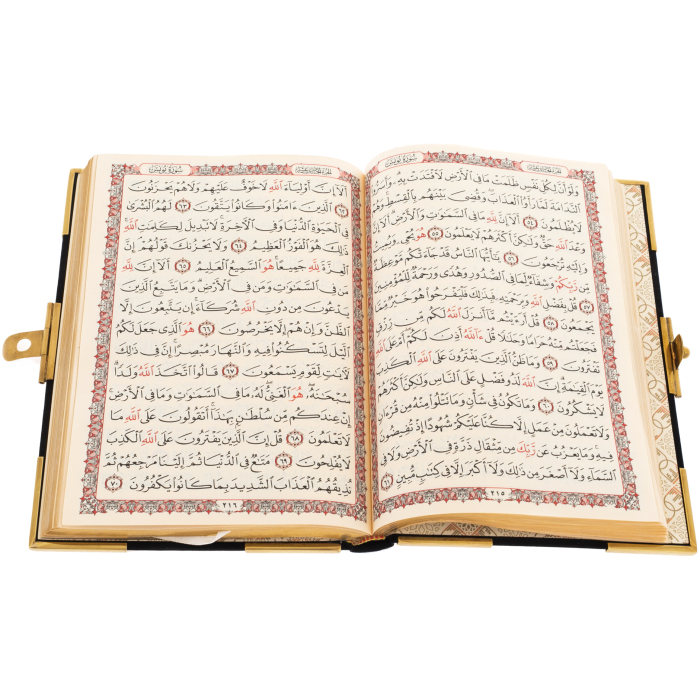 الجزء الحادي عشر
سُورَةُ يُونُسَ
وَلَوْ أَنَّ لِكُلِّ نَفْسٍ ظَلَمَتْ مَا فِي ٱلْأَرْضِ لَٱفْتَدَتْ بِهِۦ وَأَسَرُّوا۟
ٱلنَّدَامَةَ لَمَّا رَأَوُا۟ ٱلْعَذَابَ وَقُضِيَ بَيْنَهُم بِٱلْقِسْطِ وَهُمْ
لَا يُظْلَمُونَ ٥٤ أَلَآ إِنَّ لِلَّهِ مَا فِي ٱلسَّمَٰوَٰتِ وَٱلْأَرْضِ أَلَآ إِنَّ
وَعْدَ ٱللَّهِ حَقٌّ وَلَٰكِنَّ أَكْثَرَهُمْ لَا يَعْلَمُونَ ٥٥ هُوَ يُحْيِۦ وَيُمِيتُ
وَإِلَيْهِ تُرْجَعُونَ ٥٦ يَٰٓأَيُّهَا ٱلنَّاسُ قَدْ جَآءَتْكُم مَّوْعِظَةٌ
مِّن رَّبِّكُمْ وَشِفَآءٌ لِّمَا فِي ٱلصُّدُورِ وَهُدًى وَرَحْمَةٌ لِّلْمُؤْمِنِينَ
٥٧ قُلْ بِفَضْلِ ٱللَّهِ وَبِرَحْمَتِهِۦ فَبِذَٰلِكَ فَلْيَفْرَحُوا۟ هُوَ خَيْرٌ مِّمَّا
يَجْمَعُونَ ٥٨ قُلْ أَرَءَيْتُم مَّآ أَنزَلَ ٱللَّهُ لَكُم مِّن رِّزْقٍ
فَجَعَلْتُم مِّنْهُ حَرَامًا وَحَلَٰلًا قُلْ ءَآللَّهُ أَذِنَ لَكُمْ أَمْ عَلَى ٱللَّهِ
تَفْتَرُونَ ٥٩ وَمَا ظَنُّ ٱلَّذِينَ يَفْتَرُونَ عَلَى ٱللَّهِ ٱلْكَذِبَ
يَوْمَ ٱلْقِيَٰمَةِ إِنَّ ٱللَّهَ لَذُو فَضْلٍ عَلَى ٱلنَّاسِ وَلَٰكِنَّ أَكْثَرَهُمْ
لَا يَشْكُرُونَ ٦٠ وَمَا تَكُونُ فِي شَأْنٍ وَمَا تَتْلُوا۟ مِنْهُ مِن قُرْءَانٍ
وَلَا تَعْمَلُونَ مِنْ عَمَلٍ إِلَّا كُنَّا عَلَيْكُمْ شُهُودًا إِذْ تُفِيضُونَ
فِيهِ وَمَا يَعْزُبُ عَن رَّبِّكَ مِن مِّثْقَالِ ذَرَّةٍ فِي ٱلْأَرْضِ وَلَا فِي
ٱلسَّمَآءِ وَلَآ أَصْغَرَ مِن ذَٰلِكَ وَلَآ أَكْبَرَ إِلَّا فِي كِتَٰبٍ مُّبِينٍ ٦١
٢١٥
الجزء الحادي عشر
سُورَةُ يُونُسَ
أَلَآ إِنَّ أَوْلِيَآءَ ٱللَّهِ لَا خَوْفٌ عَلَيْهِمْ وَلَا هُمْ يَحْزَنُونَ
٦٢ ٱلَّذِينَ ءَامَنُوا۟ وَكَانُوا۟ يَتَّقُونَ ٦٣ لَهُمُ ٱلْبُشْرَىٰ
فِي ٱلْحَيَوٰةِ ٱلدُّنْيَا وَفِي ٱلْءَاخِرَةِ لَا تَبْدِيلَ لِكَلِمَٰتِ ٱللَّهِ
ذَٰلِكَ هُوَ ٱلْفَوْزُ ٱلْعَظِيمُ ٦٤ وَلَا يَحْزُنكَ قَوْلُهُمْ إِنَّ
ٱلْعِزَّةَ لِلَّهِ جَمِيعًا هُوَ ٱلسَّمِيعُ ٱلْعَلِيمُ ٦٥ أَلَآ إِنَّ لِلَّهِ
مَن فِي ٱلسَّمَٰوَٰتِ وَمَن فِي ٱلْأَرْضِ وَمَا يَتَّبِعُ ٱلَّذِينَ
يَدْعُونَ مِن دُونِ ٱللَّهِ شُرَكَآءَ إِن يَتَّبِعُونَ إِلَّا
ٱلظَّنَّ وَإِنْ هُمْ إِلَّا يَخْرُصُونَ ٦٦ هُوَ ٱلَّذِي جَعَلَ لَكُمُ
ٱلَّيْلَ لِتَسْكُنُوا۟ فِيهِ وَٱلنَّهَارَ مُبْصِرًا إِنَّ فِي ذَٰلِكَ
لَءَايَٰتٍ لِّقَوْمٍ يَسْمَعُونَ ٦٧ قَالُوا۟ ٱتَّخَذَ ٱللَّهُ وَلَدًا
سُبْحَٰنَهُۥ هُوَ ٱلْغَنِيُّ لَهُۥ مَا فِي ٱلسَّمَٰوَٰتِ وَمَا فِي ٱلْأَرْضِ
إِنْ عِندَكُم مِّن سُلْطَٰنٍ بِهَٰذَآ أَتَقُولُونَ عَلَى ٱللَّهِ مَا
لَا تَعْلَمُونَ ٦٨ قُلْ إِنَّ ٱلَّذِينَ يَفْتَرُونَ عَلَى ٱللَّهِ ٱلْكَذِبَ
لَا يُفْلِحُونَ ٦٩ مَتَٰعٌ فِي ٱلدُّنْيَا ثُمَّ إِلَيْنَا مَرْجِعُهُمْ ثُمَّ
نُذِيقُهُمُ ٱلْعَذَابَ ٱلشَّدِيدَ بِمَا كَانُوا۟ يَكْفُرُونَ ٧٠
٢١٦